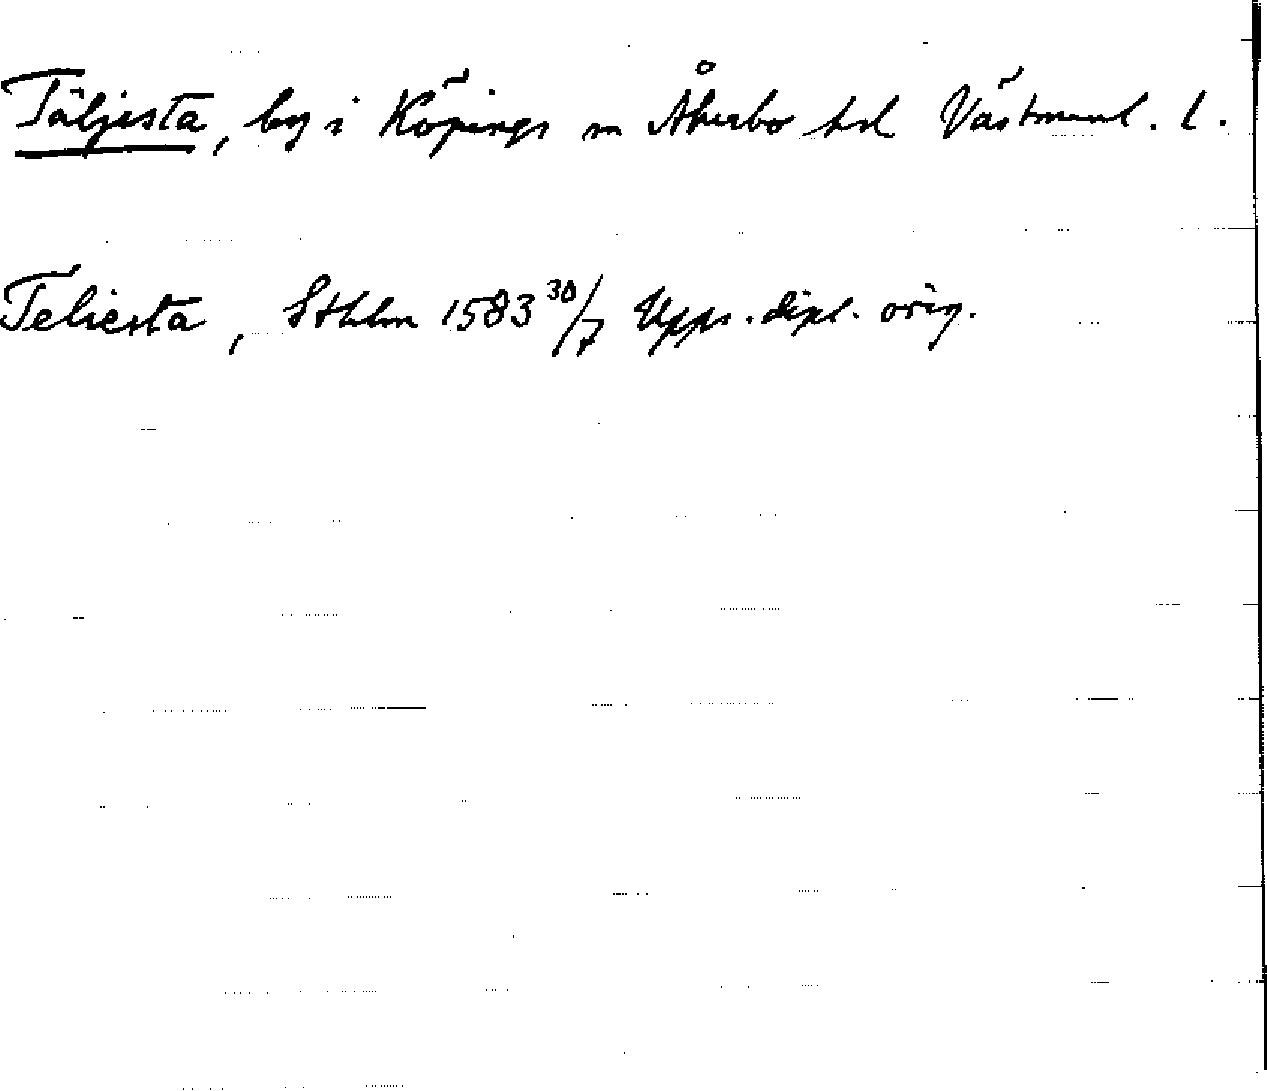 Täljesta, by i Köpings sn Åkerbo hd Västmanl. l.
Teliesta, Sthlm 1583 30/7 Upps. dipl. orig.